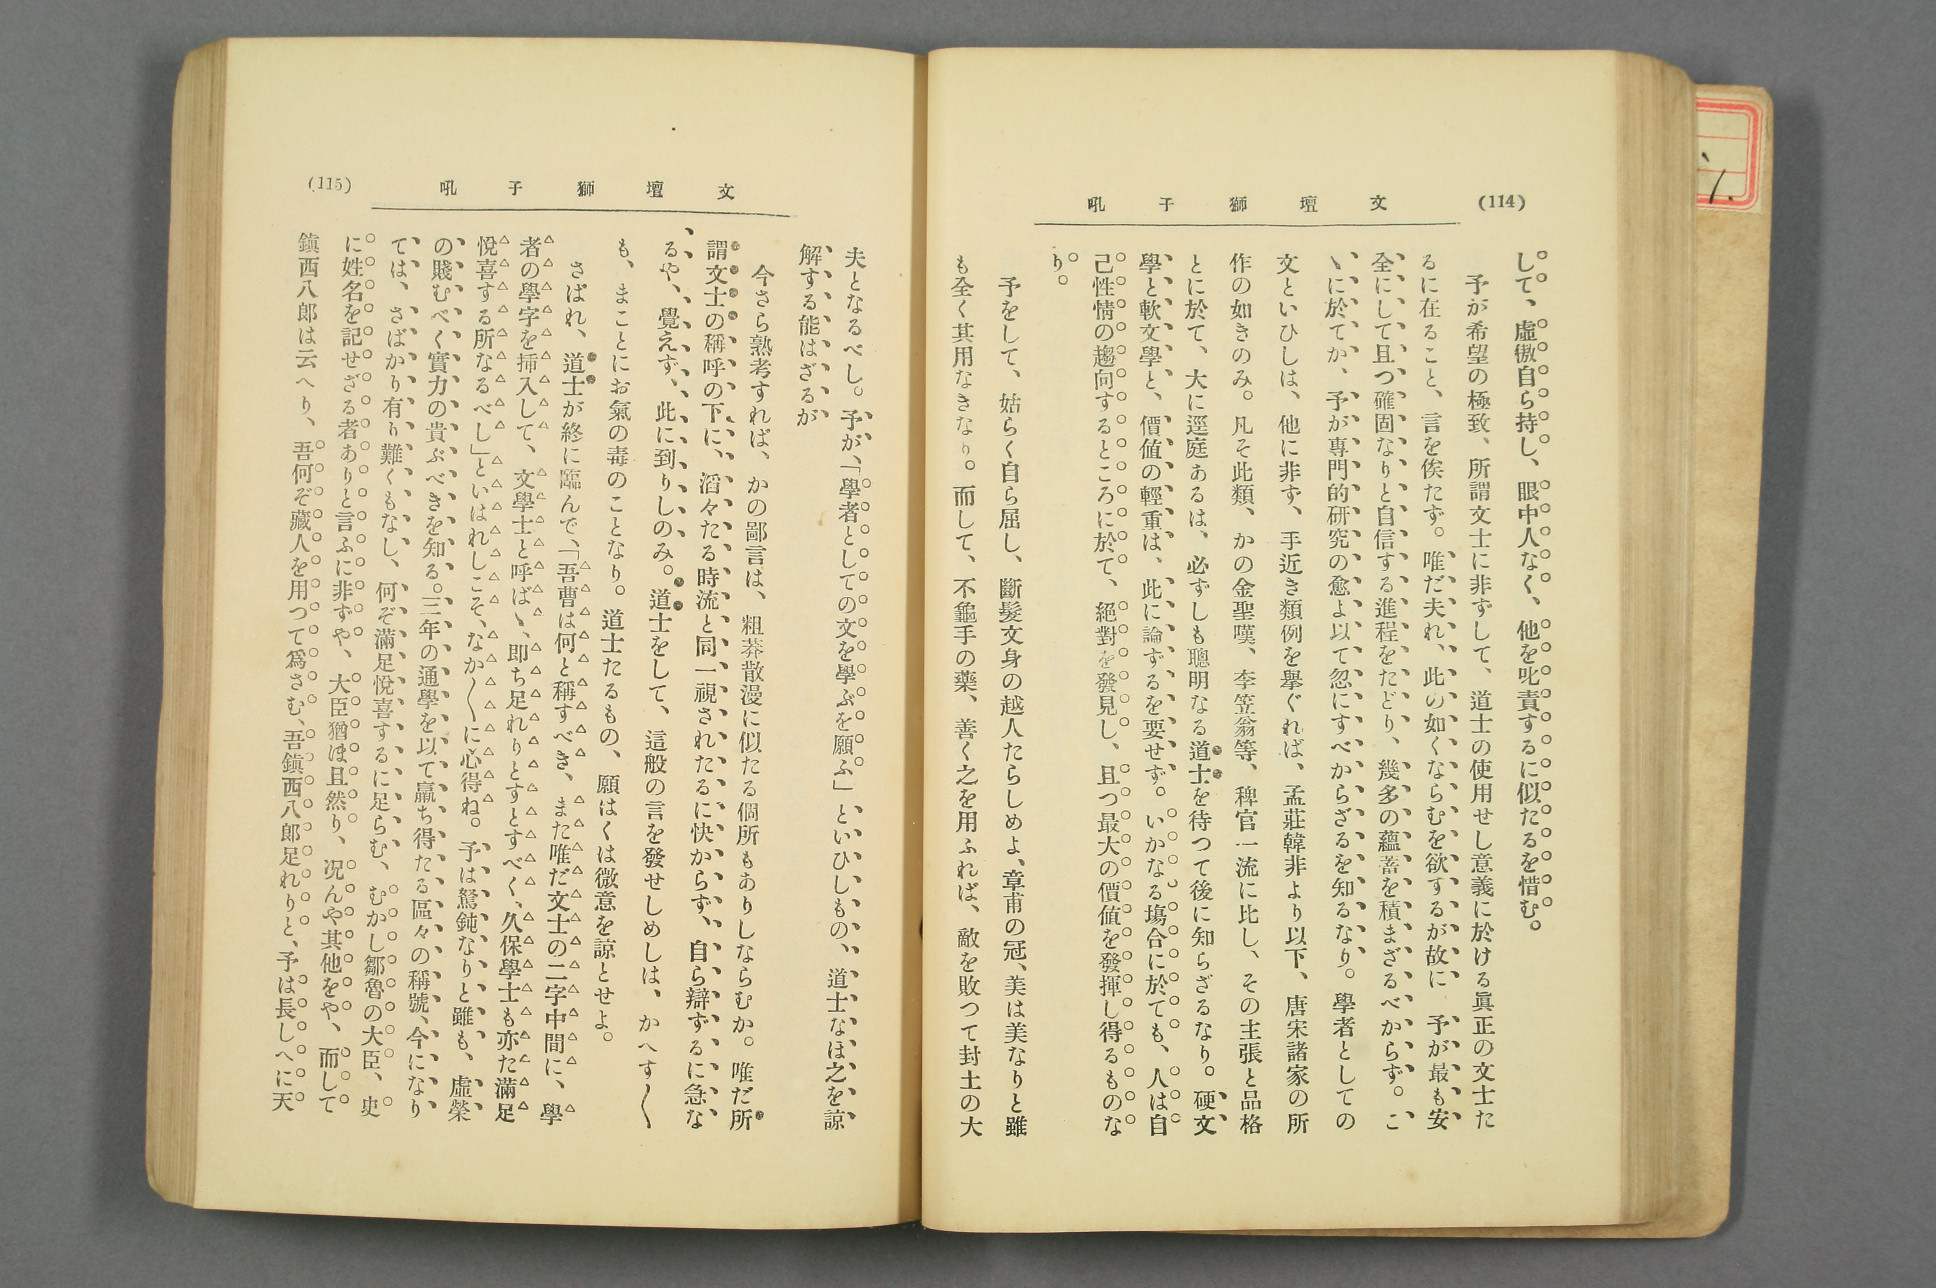 (114)
文壇獅子吼
して、虛傲自ら持し、眼中人なく、他を叱責するに似たるを惜む。
予が希望の極致、所謂文士に非ずして、道士の使用せし意義に於ける眞正の文士た
るに在ること、言を俟たず。唯だ夫れ、此の如くならむを欲するが故に予が最も安
全にして且つ確固なりと自信する進程をたどり、幾多の蘊蓄を積まざるべからず。こ
ゝに於てか、予が專門的研究の愈よ以て忽にすべからざるを知るなり。學者としての
文といひしは、他に非ず、手近き類例を擧ぐれば、孟莊韓非より以下、唐宋諸家の所
作の如きのみ。凡そ此類、かの金聖嘆、李笠翁等、稗官一流に比し、その主張と品格
とに於て、大に逕庭あるは、必ずしも聰明なる道士を待つて後に知らざるなり。硬文
學と軟文學と、價値の輕重は、此に論ずるを要せず。いかなる塲合に於ても、人は自
己性情の趨向するところに於て、絕對を發見し、且つ最大の價値を發揮し得るものな
り。
予をして、姑らく自ら屈し、斷髮文身の越人たらしめよ、章甫の冠、美は美なりと雖
も全く其用なきなり。而して、不龜手の藥、善く之を用ふれば、敵を敗つて封土の大
(115)
文壇獅子吼
夫となるべし。予が、「學者としての文を學ぶを願ふ」といひしもの、道士なほ之を諒
解する能はざるが
今さら熟考すれば、かの鄙言は、粗莽散漫に似たる個所もありしならむか。唯だ所
謂文士の稱呼の下に、滔々たる時流と同一視されたるに快からず、自ら辯ずるに急な
るや、覺えず、此に到りしのみ。道士をして、這般の言を發せしめしは、かへす〱
も、まことにお氣の毒のことなり。道士たるもの、願はくは微意を諒とせよ。
さばれ、道士が終に臨んで、「吾曹は何と稱すべき、また唯だ文士の二字中間に、學
者の學字を挿入して、文學士と呼ばゝ、即ち足れりとすとすべく、久保學士も亦た滿足
悅喜する所なるべし」といはれしこそ、なか〱に心得ね。予は駑鈍なりと雖も、虛榮
の賤むべく實力の貴ぶべきを知る。三年の通學を以て贏ち得たる區々の稱號、今になり
ては、さばかり有り難くもなし、何ぞ滿足悅喜するに足らむ、むかし鄒魯の大臣、史
に姓名を記せざる者ありと言ふに非ずや、大臣猶ほ且然り、况んや其他をや、而して
鎭西八郞は云へり、吾何ぞ藏人を用つて爲さむ、吾鎭西八郞足れりと、予は長しへに天